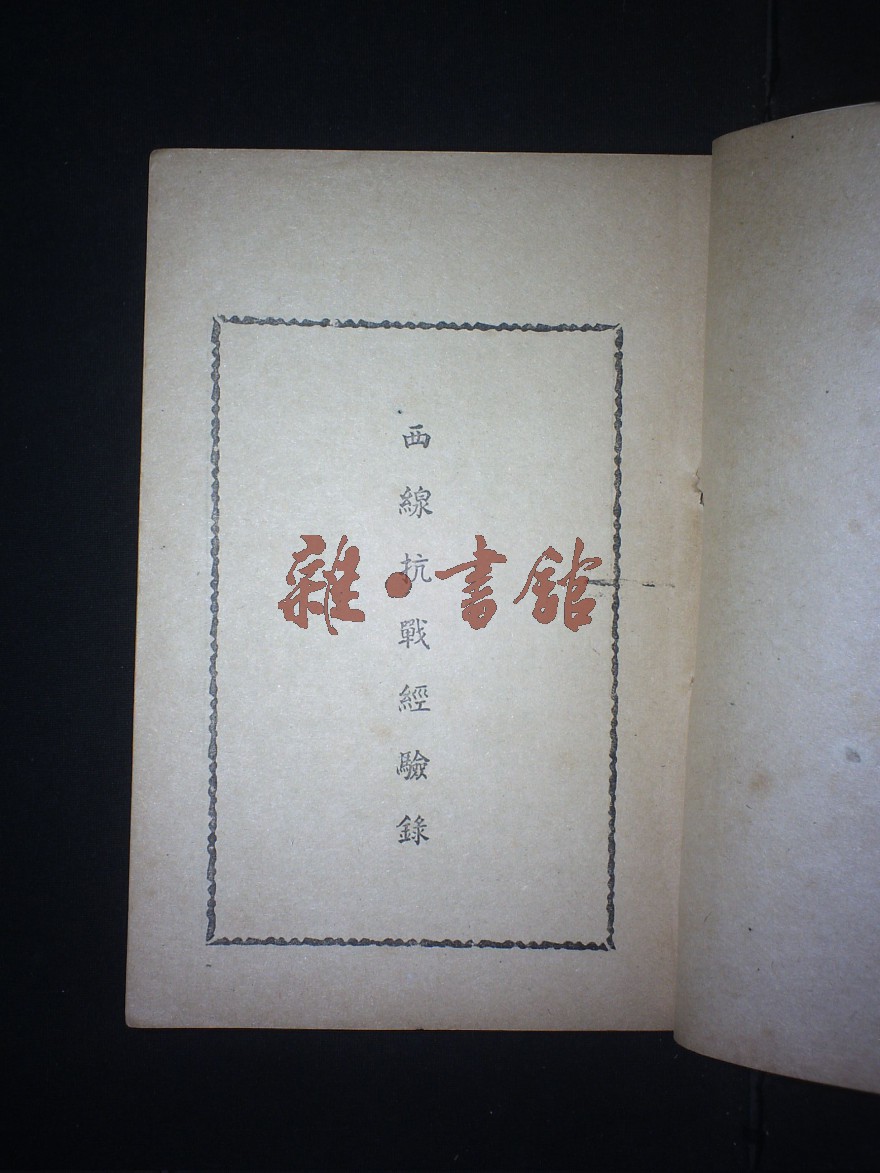 西線抗戰經驗錄
雜·書館